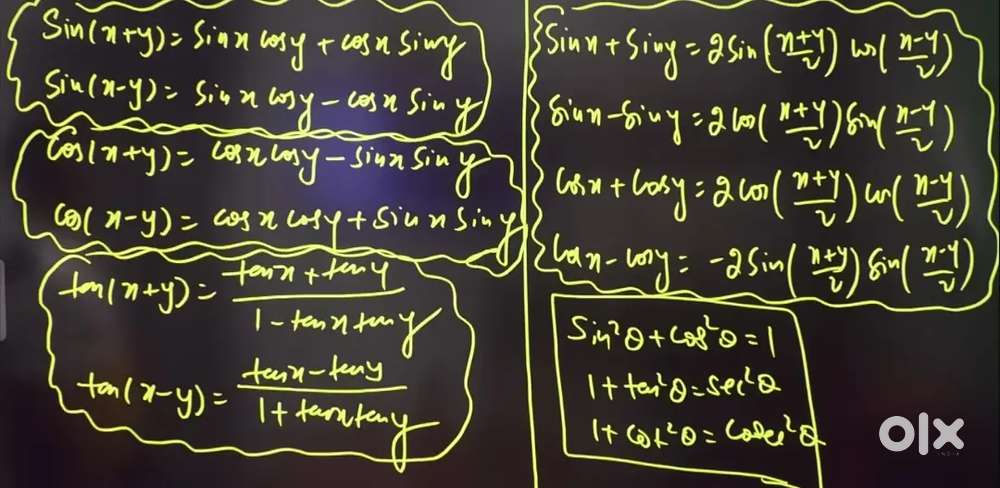 Sin(x+y) = Sinx cosy + cosx Siny
Sin(x-y) = Sinx cosy - cosx Siny
Cos(x+y) = cosx cosy - sinx siny
Cos(x-y) = cosx cosy + Sinx Siny
tan(x+y) = (tanx + tany)/(1 - tanx tany)
tan(x-y) = (tanx - tany)/(1 + tanx tany)
Sinx + Siny = 2Sin((x+y)/2) cos((x-y)/2)
Sinx - Siny = 2cos((x+y)/2) Sin((x-y)/2)
Cosx + Cosy = 2cos((x+y)/2) cos((x-y)/2)
Cosx - cosy = -2Sin((x+y)/2) Sin((x-y)/2)
Sin²θ + cos²θ = 1
1 + tan²θ = sec²θ
1 + cot²θ = cosec²θ
olx
INDIA